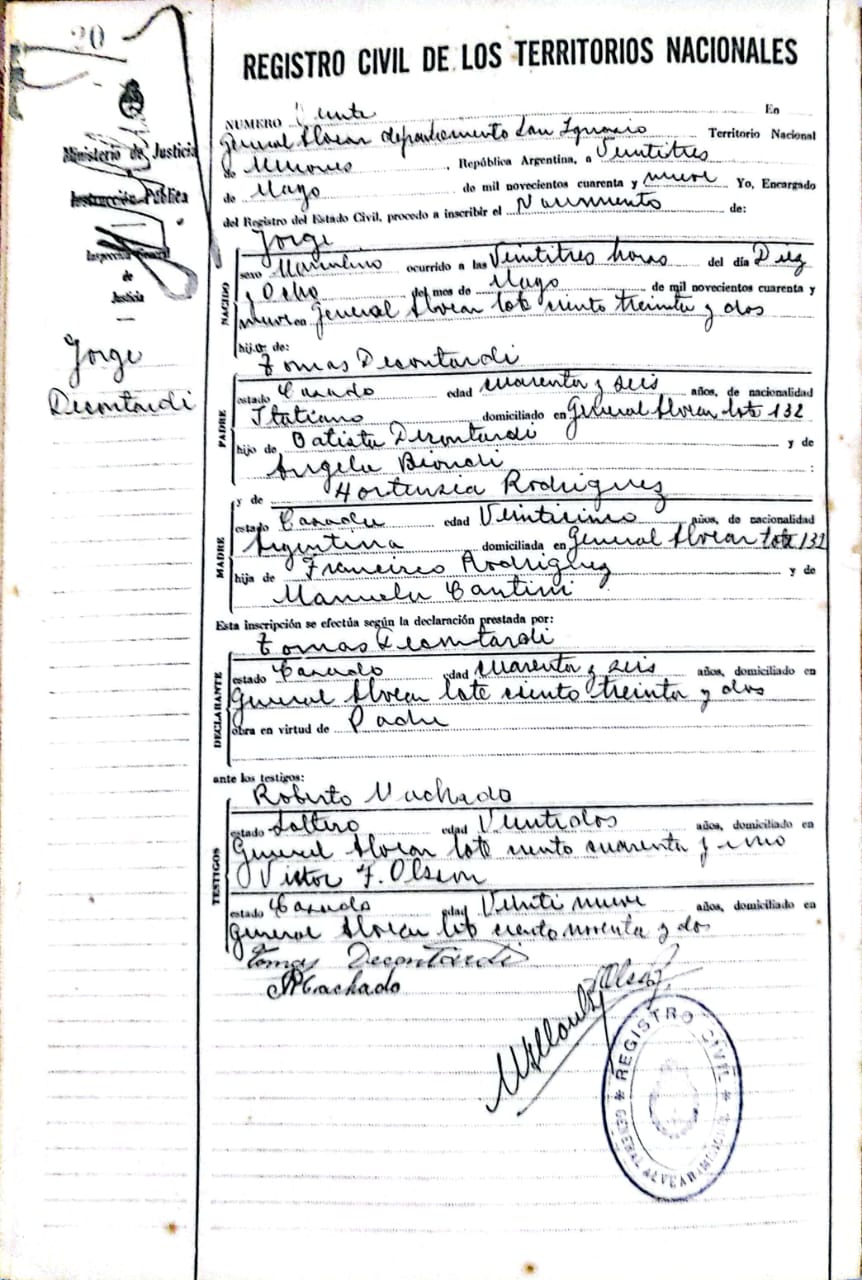 20
REGISTRO CIVIL DE LOS TERRITORIOS NACIONALES
Ministerio de Justicia
Instrucción Pública
Inspección General
de
Justicia
Jorge
Decontardi
NUMERO Veinte En
General Alvear departamento San Ignacio Territorio Nacional
de Misiones, República Argentina, a Veintitres
de Mayo de mil novecientos cuarenta y nueve Yo, Encargado
del Registro del Estado Civil, procedo a inscribir el Nacimiento de:
Jorge
NACIDO
sexo Masculino ocurrido a las Veintitres horas del día Diez
y Ocho del mes de Mayo de mil novecientos cuarenta y
nueve en General Alvear lote ciento treinta y dos
hijo de:
Tomas Decontardi
PADRE
estado Casado edad cuarenta y seis años, de nacionalidad
Italiano domiciliado en General Alvear lote 132
hijo de Batista Decontardi y de
Angela Biondi
y de Hortensia Rodriguez
MADRE
estado Casada edad Veinticinco años, de nacionalidad
Argentina domiciliada en General Alvear lote 132
hija de Francisco Rodriguez y de
Manuela Cantini
Esta inscripción se efectúa según la declaración prestada por:
Tomas Decontardi
DECLARANTE
estado Casado edad cuarenta y seis años, domiciliado en
General Alvear lote ciento treinta y dos
obra en virtud de Padre
ante los testigos:
Roberto Machado
TESTIGOS
estado Soltero edad Veintidos años, domiciliado en
General Alvear lote ciento cuarenta y uno
Victor F. Olsson
estado Casado edad Veinti nueve años, domiciliado en
General Alvear lote ciento noventa y dos
Tomas Decontardi
RMachado
REGISTRO CIVIL
GENERAL ALVEAR